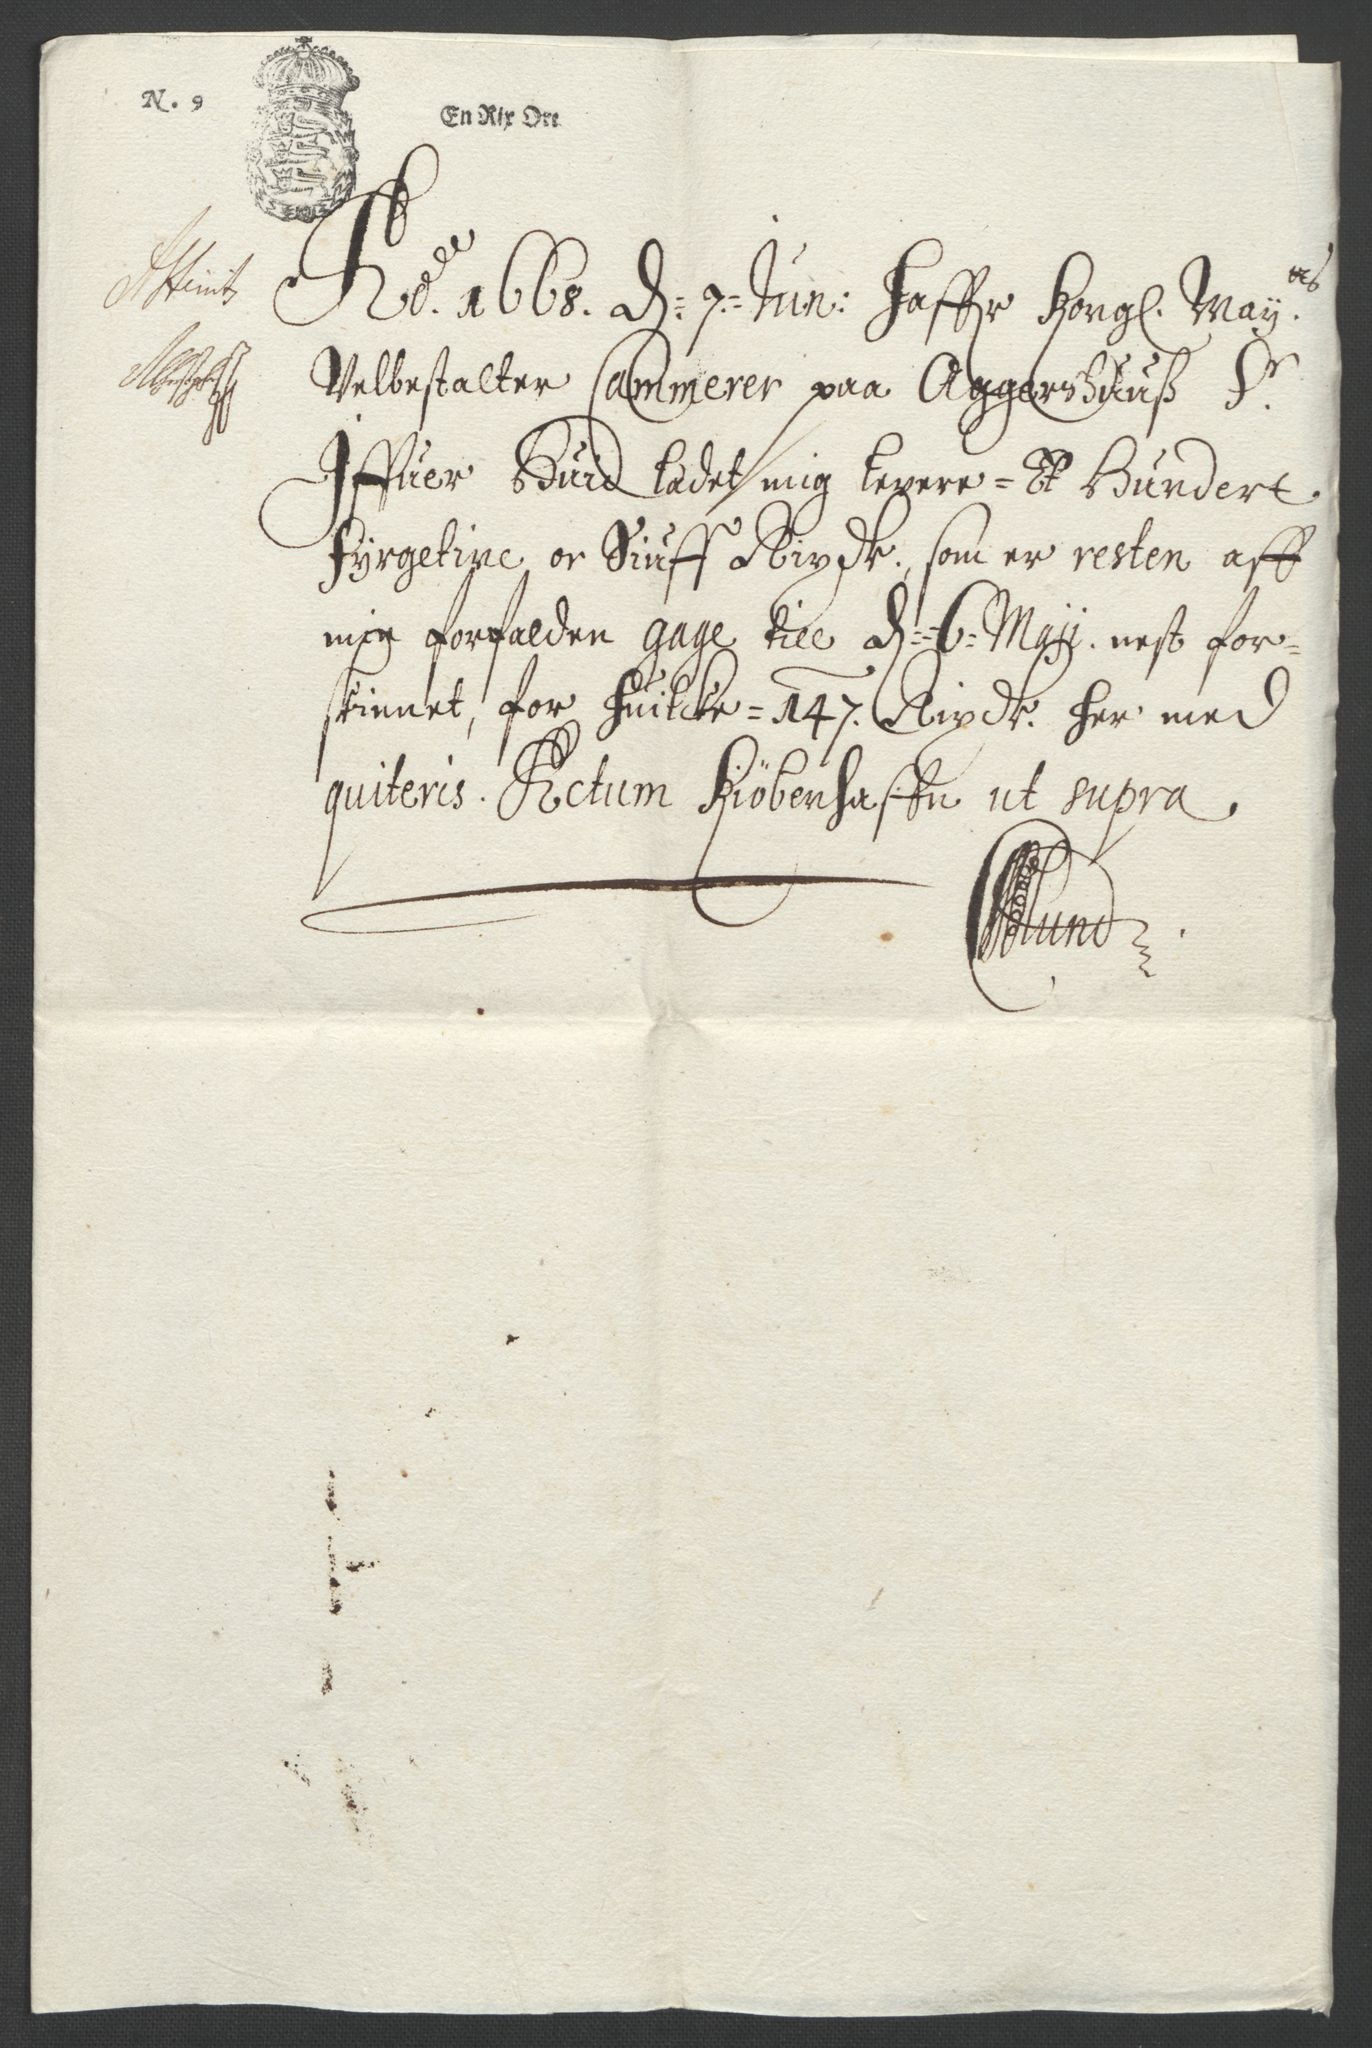 N. 9
En Rix Ort
Ao.de 1668. d: 7: Jun: haffr Kongl. May.tts
Velbestalter Cammerer paa Aggershuuß Sr.
Iffuer Huid ladet mig levere = Et Hundert
Fyrgetiuve oc Siuff Rixdr., som er resten aff
min forfalden gage till d: 6: Maij. nest for=
skinnet, for huilcke = 147. Rixdr. her med
quiteris. Actum Kiöbenhaffn ut supra.